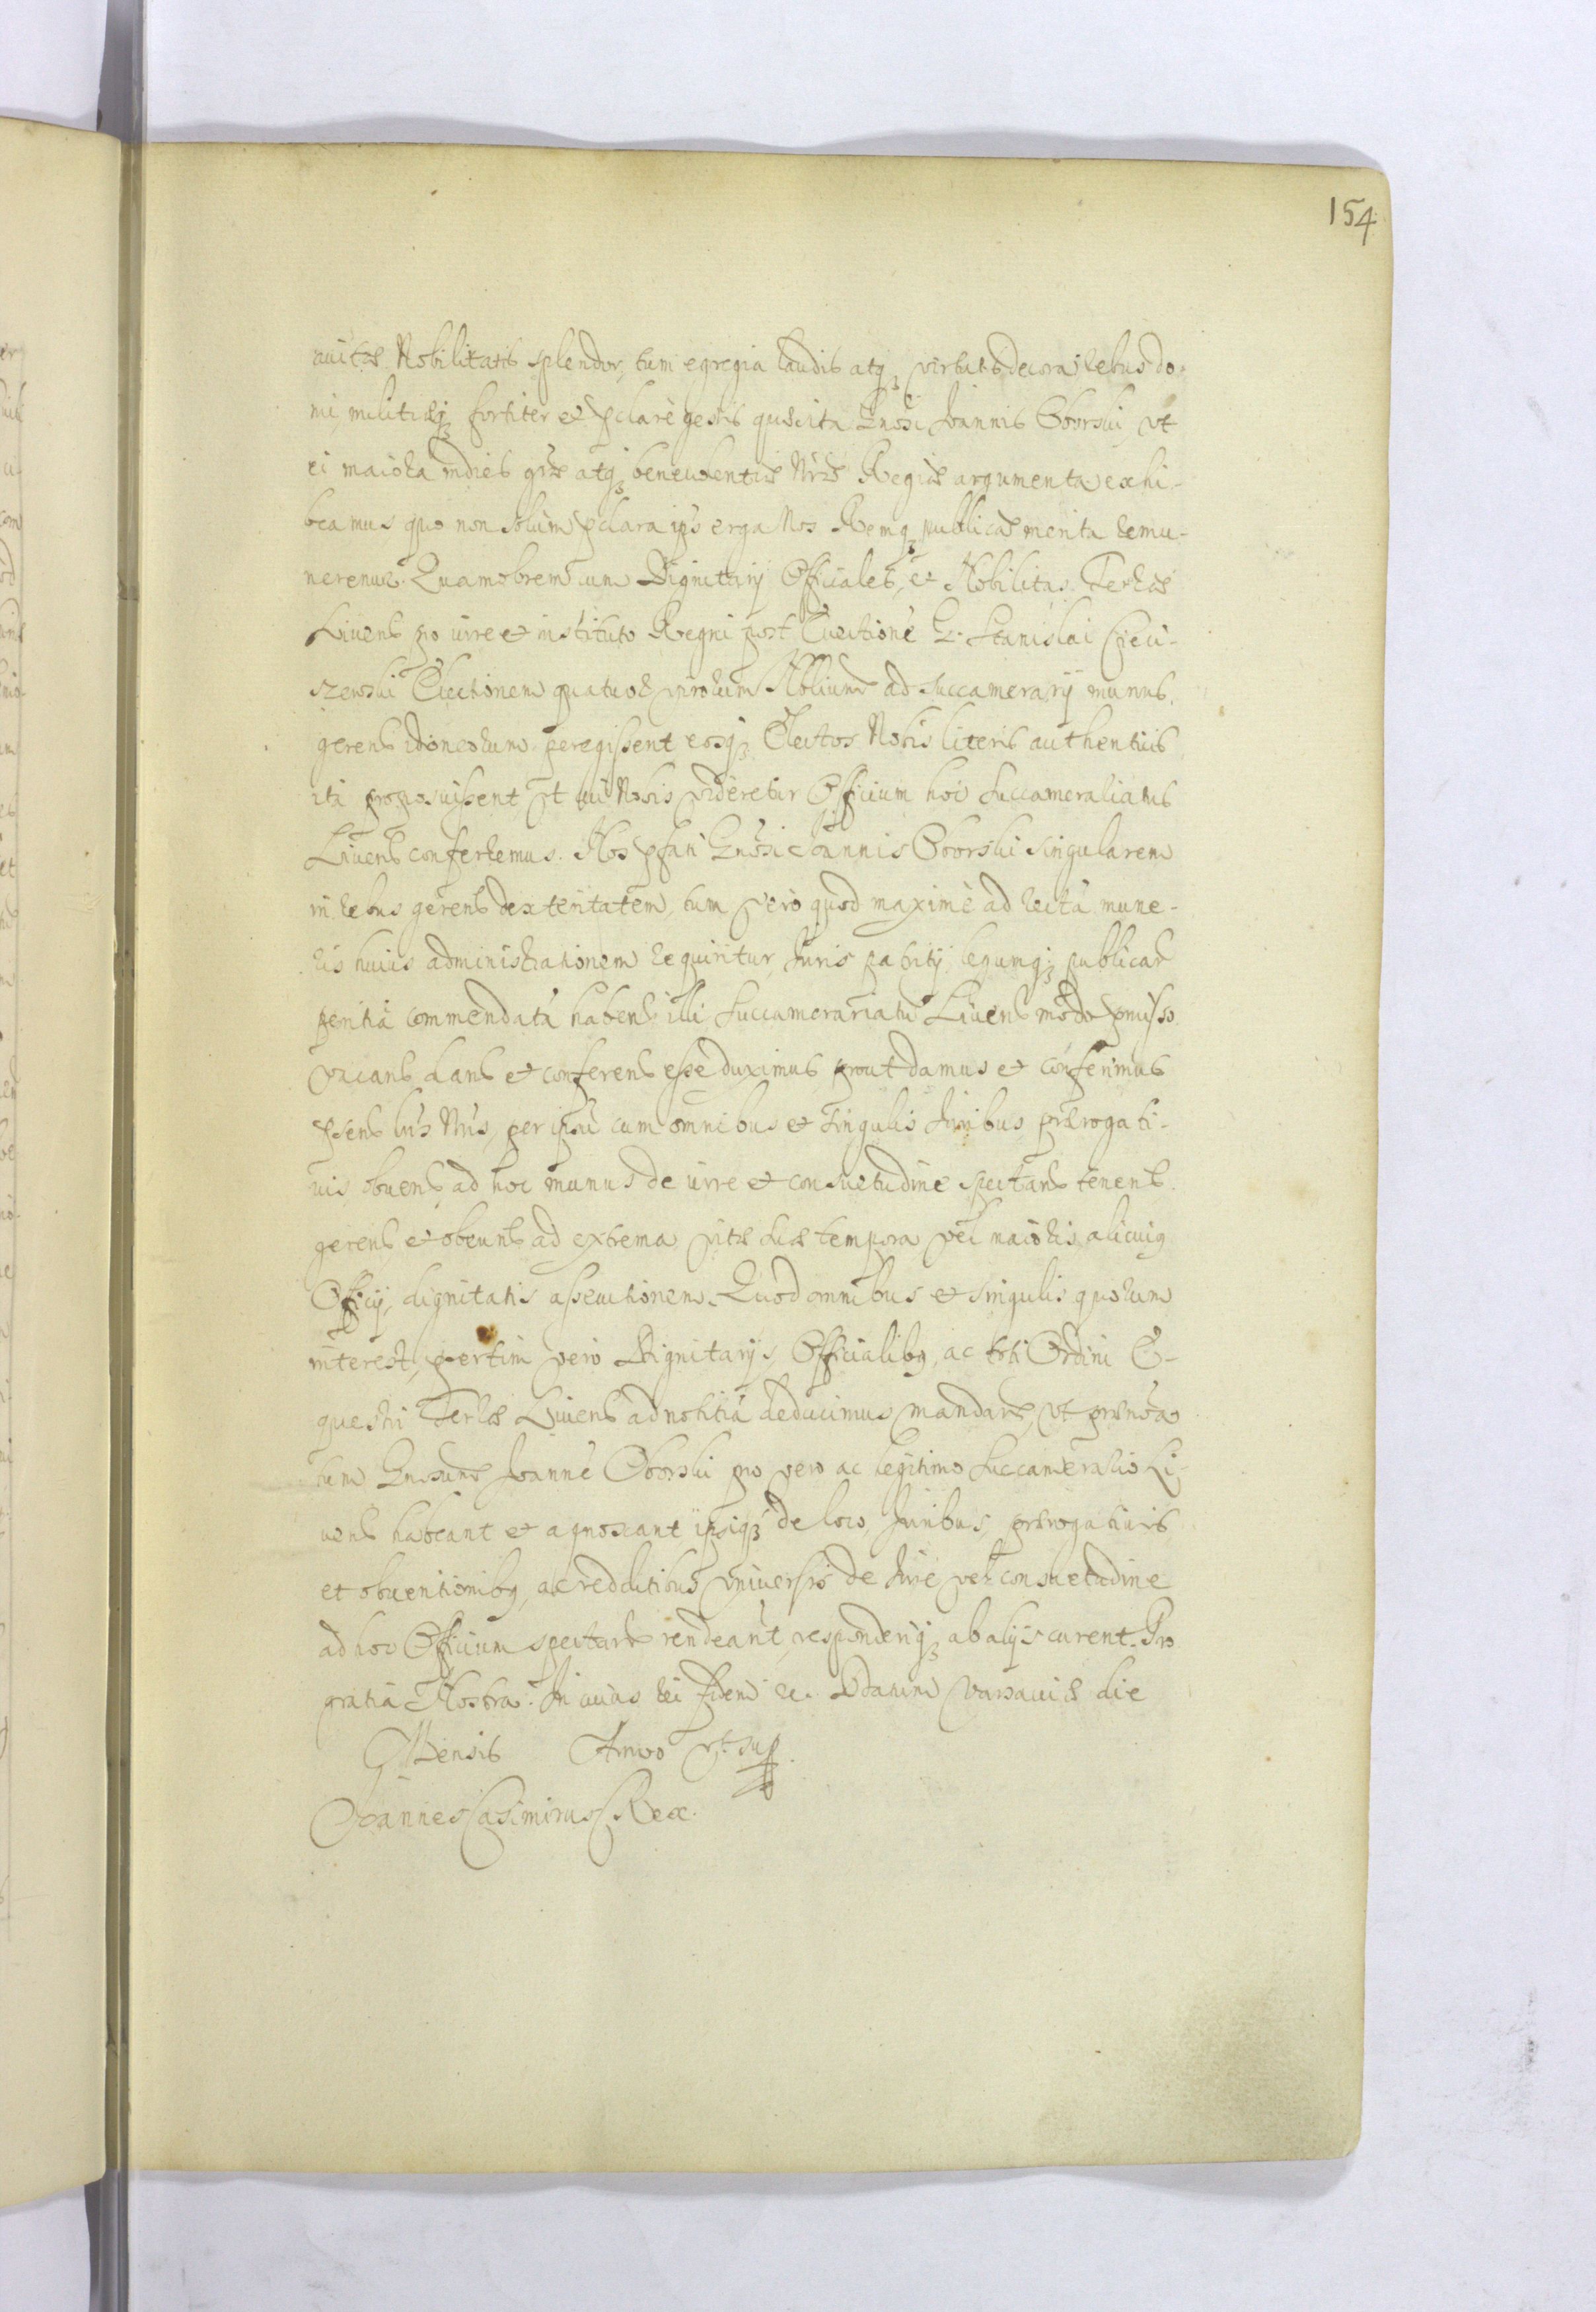 154
auitæ Nobilitatis splendor, tum egregia laudis atq3 virtutis decora, rebus do-
mi, militiæq3 fortiter et pclarè gestis quæsita Gnosi Joannis Oborski, vt
ei maiora indies græ atq3 beneuolentiæ Nræ Regiæ argumenta exhi-
beamus quo non solùm pclara ips erga Nos Remq3 publicã merita remu-
neremur. Quamobrem cum Dignitarij Officiales, et Nobilitas Terræ
Liuens pro iure et instituto Regni post G. Stanislai
Electionem quatuor virorum Nblium ad Succamerarij munus
gerend idoneorum peregissent eosq3 Electos Nobis literis authenticis
ita proposuissent, vt cui Nobis videretur Officium hoc Succameraliatus
Liuens conferremus. Nos pfati Gnosi Joannis Oborski singularem
in rebus gerend dexteritatem, tum verò quod maximè ad rectã mune-
ris huius administrationem requiritur, Juris patrij legumq3 publicar
peritiã commendatã habent illi Succamerariatũ Liuens modo pmisso
vacant dand et conferend esse duximus prout damus et conferimus
psent lris Nris, per ipsũ cum omnibus et singulis Juribus prærogati-
uis obuent ad hoc munus de iure et consuetudine spectant tenend
gerend et obeund ad extrema vitæ suæ tempora vel maioris alicuiq
Officij, dignitatis assecutionem. Quod omnibus et singulis quorum
interest, psertim vero Dignitarijs, Officialibq, ac toti Ordini E-
questri Terræ Liuens ad notitiã deducimus, mandant, vt prænoã
tum Gnosum Joannẽ Oborski pro vero ac legitimo Succamerario Li-
uens habeant et agnoscant ipsiq3 de loco, Juribus, prærogatiuis
et obuentionibq, ac redditibus vniuersis de Jure vel consuetudine
ad hoc Officium spectant rendeant, responderiq3 ab alijs curent. Pro
gratia Nostra. In cuius rei fidem &c. Datum Varsauiæ die
Mensis Anno vt sup.
Joannes Casimirus Rex.